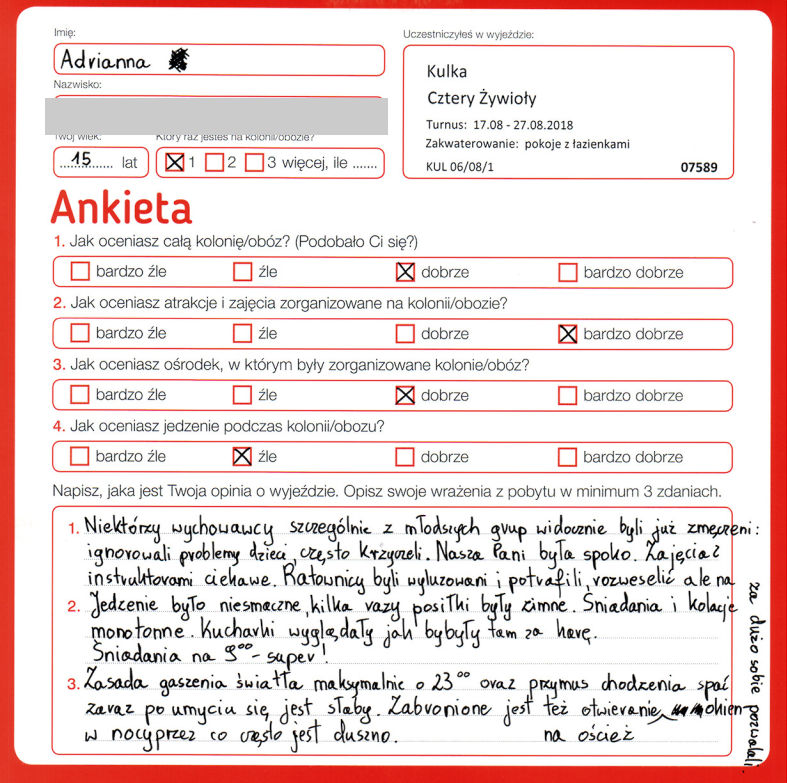 Imię:
Adrianna
Nazwisko:
Twój wiek:
15 lat
Który raz jesteś na kolonii/obozie?
1 2 3 więcej, ile .......
Uczestniczyłeś w wyjeździe:
Kulka
Cztery Żywioły
Turnus: 17.08 - 27.08.2018
Zakwaterowanie: pokoje z łazienkami
KUL 06/08/1 07589
Ankieta
1. Jak oceniasz całą kolonię/obóz? (Podobało Ci się?)
bardzo źle źle dobrze bardzo dobrze
2. Jak oceniasz atrakcje i zajęcia zorganizowane na kolonii/obozie?
bardzo źle źle dobrze bardzo dobrze
3. Jak oceniasz ośrodek, w którym były zorganizowane kolonie/obóz?
bardzo źle źle dobrze bardzo dobrze
4. Jak oceniasz jedzenie podczas kolonii/obozu?
bardzo źle źle dobrze bardzo dobrze
Napisz, jaka jest Twoja opinia o wyjeździe. Opisz swoje wrażenia z pobytu w minimum 3 zdaniach.
1. Niektórzy wychowawcy szczególnie z młodszych grup widocznie byli już zmęczeni:
ignorowali problemy dzieci, często krzyczeli. Nasza Pani była spoko. Zajęcia z
instruktorami ciekawe. Ratownicy byli wyluzowani i potrafili rozweselić ale na
za dużo sobie pozwalali
2. Jedzenie było niesmaczne, kilka razy posiłki były zimne. Śniadania i kolacje
monotonne. Kucharki wyglądały jak byby były tam za karę.
Śniadania na 9⁰⁰ - super!
3. Zasada gaszenia światła maksymalnie o 23⁰⁰ oraz przymus chodzenia spać
zaraz po umyciu się, jest słaby. Zabronione jest też otwieranie okien
na oścież
w nocy przez co często jest duszno.